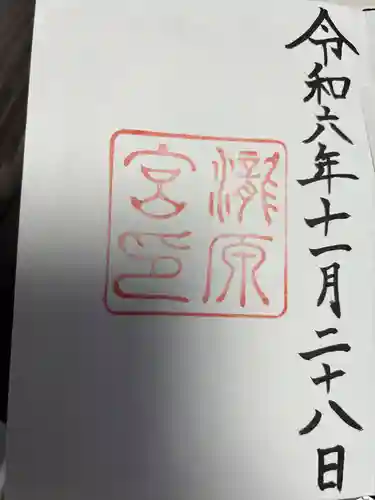 令和六年十一月二十八日
瀧原
宮印